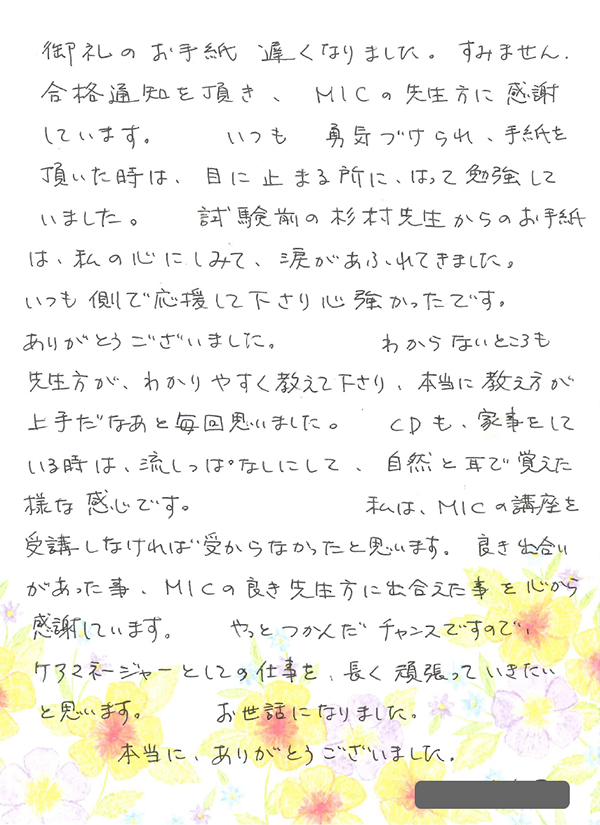 御礼のお手紙 遅くなりました。すみません.
合格通知を頂き、 MICの先生方に感謝
しています。 いつも 勇気づけられ、手紙を
頂いた時は、目に止まる所に、はって勉強して
いました。 試験前の杉村先生からのお手紙
は、私の心にしみて、涙があふれてきました。
いつも側で応援して下さり心強かったです。
ありがとうございました。 わからないところも
先生方が、わかりやすく教えて下さり、本当に教え方が
上手だなあと毎回思いました。 CDも、家事をして
いる時は、流しっぱなしにして、自然と耳で覚えた
様な感じです。 私は、MICの講座を
受講しなければ受からなかったと思います。良き出合い
があった事、MICの良き先生方に出合えた事を心から
感謝しています。 やっとつかんだチャンスですので、
ケアマネージャーとしての仕事を、長く頑張っていきたい
と思います。 お世話になりました。
本当に、ありがとうございました.